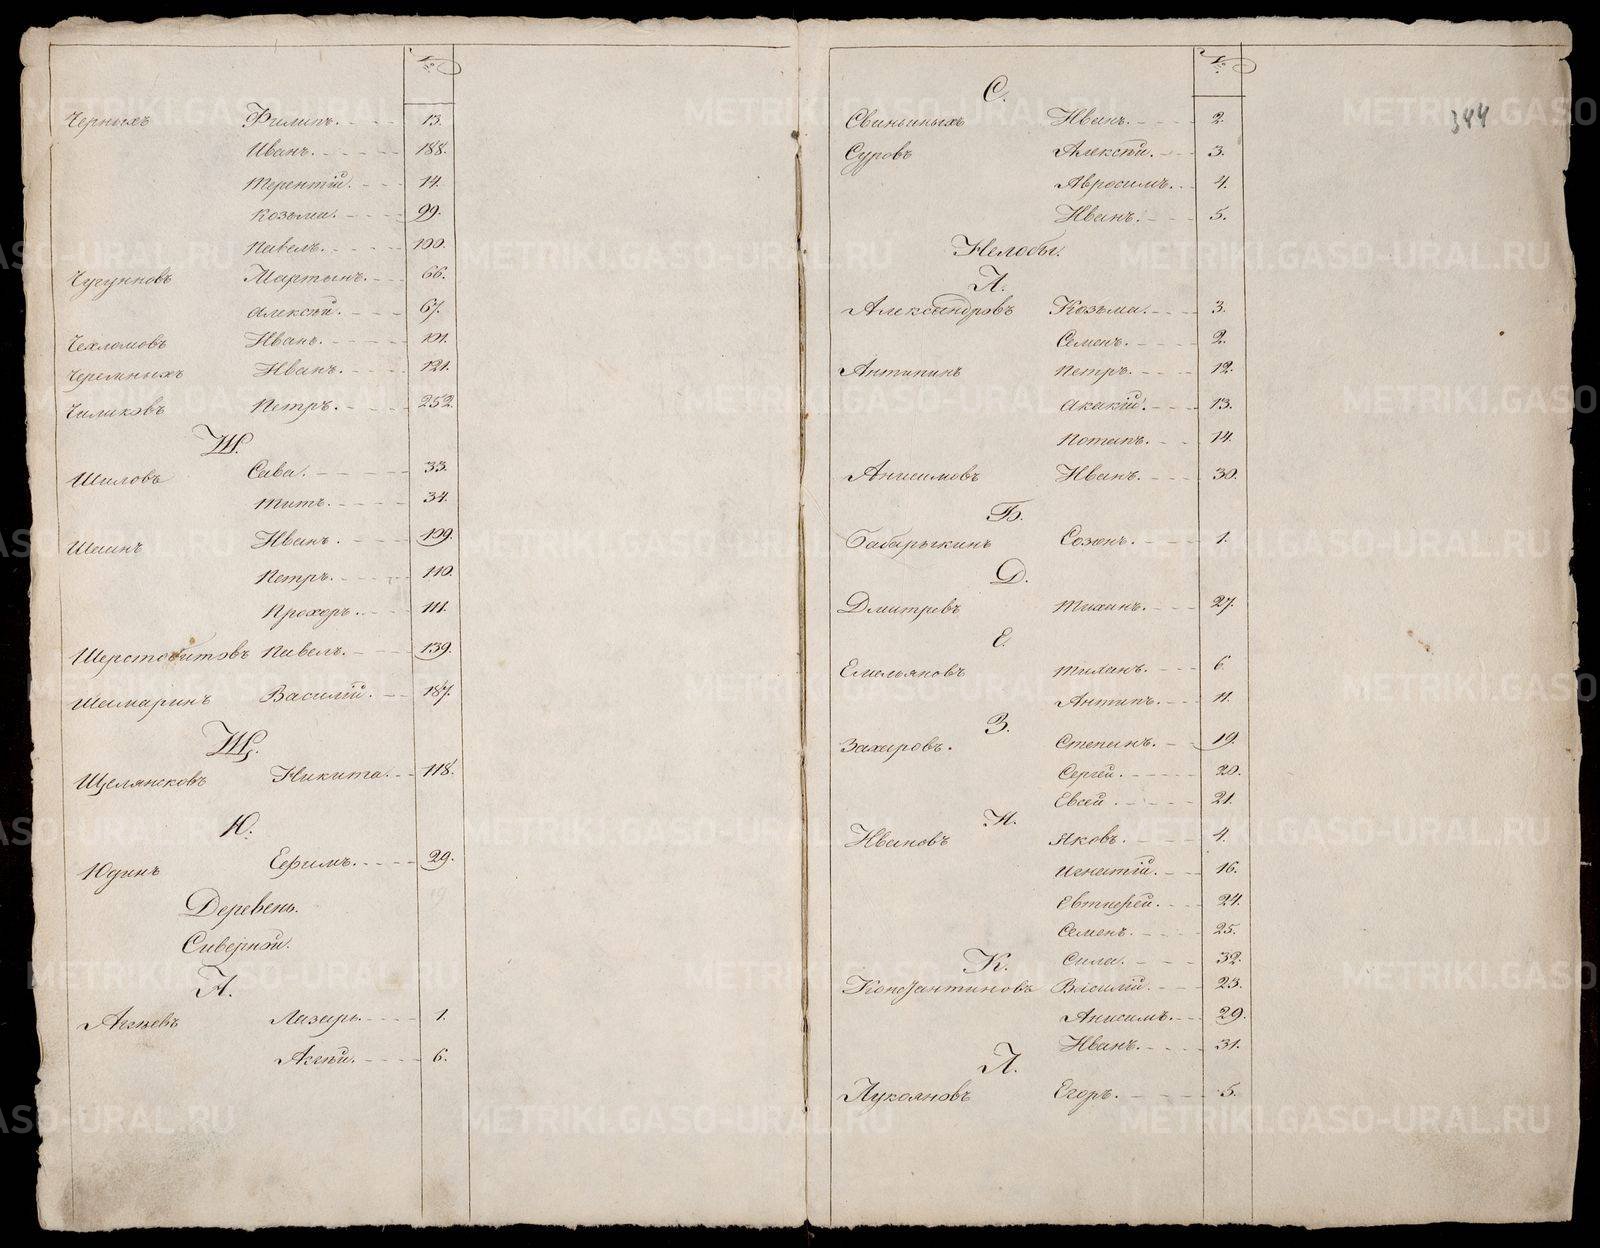 №
Черныхъ Филипъ. 13.
Иванъ. 188.
Терентій. 14.
Козьма. 99.
Павелъ. 100.
Чугуновъ Мартынъ. 66.
Алексѣй. 67.
Чехломовъ Иванъ. 101.
Черемныхъ Иванъ. 121.
Чиликовъ Петръ. 252.
Ш.
Шиловъ Сава. 33.
Титъ. 34.
Шеинъ Иванъ. 109.
Петръ. 110.
Прохоръ. 111.
Шерстобитовъ Павелъ. 139.
Шамаринъ Василій. 187.
Щ.
Щелянсковъ Никита. 118.
Ю.
Юдинъ Ефимъ. 29.
Деревень.
Сиверной.
А.
Лазарь. 1.
6.
№
344
С.
Свиньиныхъ Иванъ. 2.
Суровъ Алексѣй. 3.
Авросимъ. 4.
Иванъ. 5.
Нелобы.
А.
Александровъ Козьма. 3.
Семенъ. 2.
Антипинъ Петръ. 12.
Акакій. 13.
Потапъ. 14.
Анисимовъ Иванъ. 30.
Б.
Бабарыкинъ Созонъ. 1.
Д.
Дмитревъ Тихинъ. 27.
Е.
Емельяновъ Тиханъ. 6.
Антипъ. 11.
З.
Захаровъ. Степанъ. 19.
Сергей. 20.
Евсей. 21.
И.
Ивановъ Яковъ. 4.
Игнатій. 16.
Евтифей. 24.
Семенъ. 25.
Сила. 32.
К.
Константиновъ Василій. 23.
Анисимъ. 29.
Иванъ. 31.
Л.
Лукояновъ Егоръ. 5.
METRIKI.GASO-URAL.RU